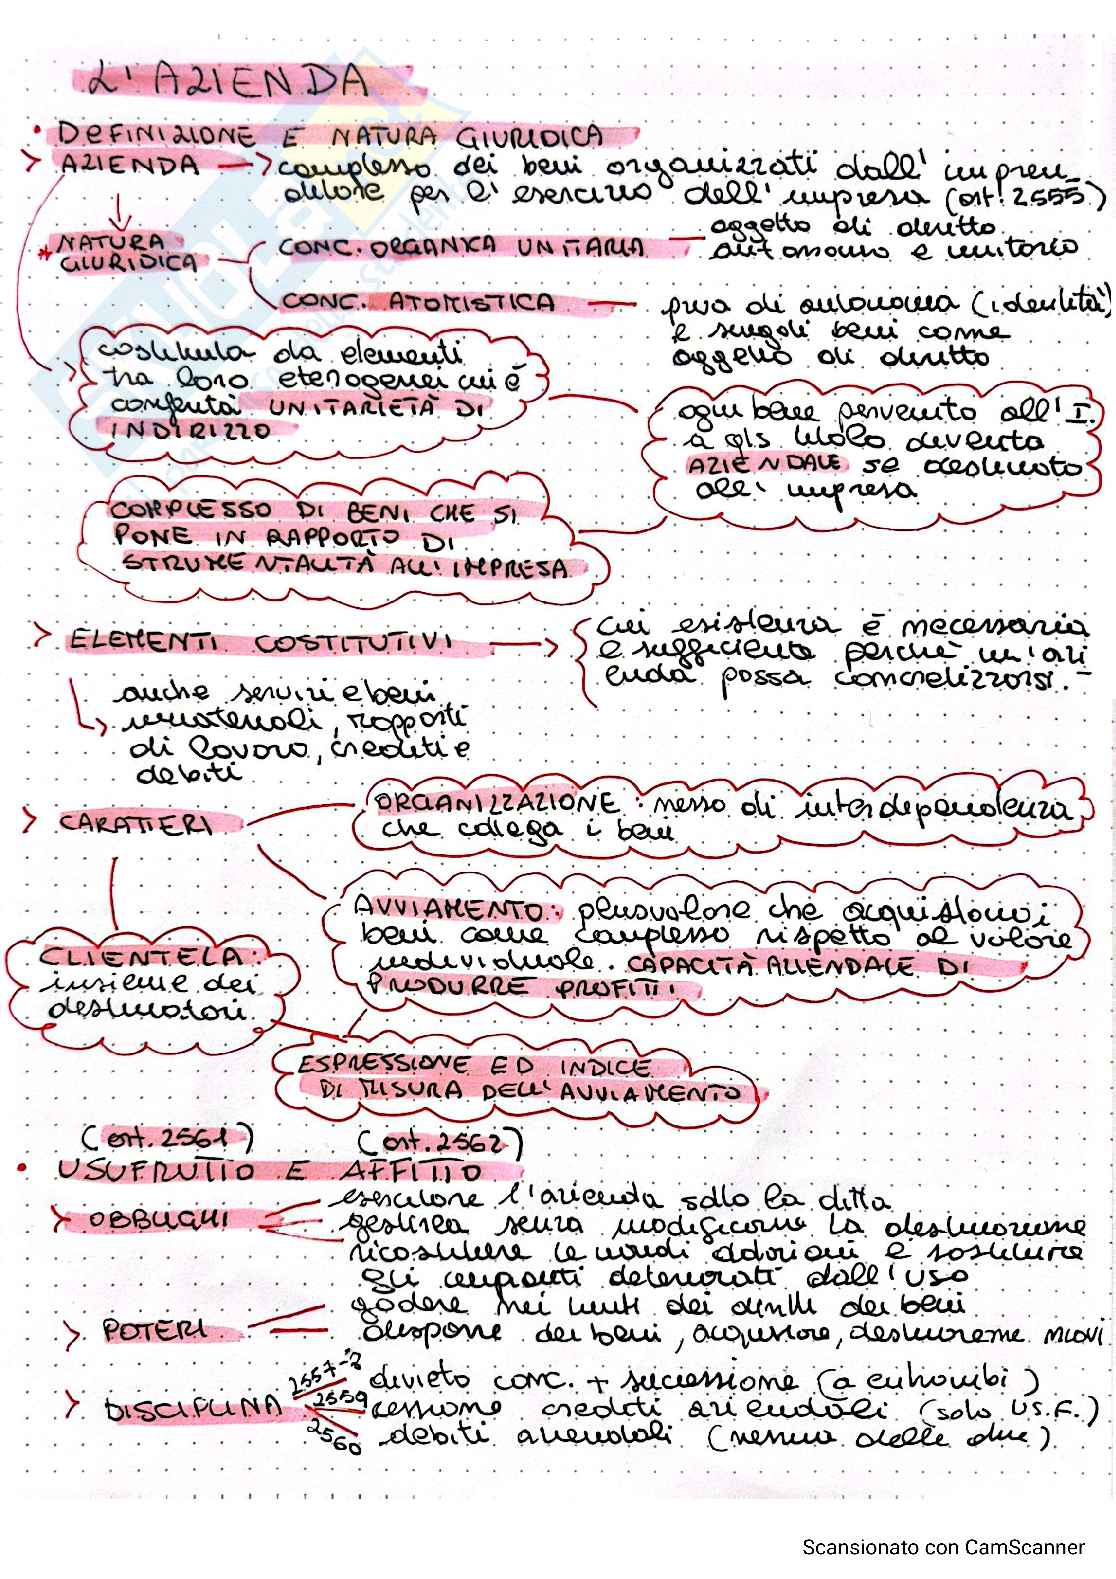 L'AZIENDA
• DEFINIZIONE E NATURA GIURIDICA
> AZIENDA → complesso dei beni organizzati dall'impren_
ditore per l'esercizio dell'impresa (art. 2555)
* NATURA GIURIDICA
CONC. ORGANICA UNITARIA — oggetto di diritto
autonomo e unitario
CONC. ATOMISTICA — priva di autonomia (identità)
e singoli beni come
oggetto di diritto
costituita da elementi
tra loro eterogenei cui è
conferita UNITARIETÀ DI
INDIRIZZO
ogni bene pervenuto all'I.
a qls titolo diventa
AZIENDALE se destinato
all'impresa
COMPLESSO DI BENI CHE SI
PONE IN RAPPORTO DI
STRUMENTALITÀ ALL'IMPRESA
> ELEMENTI COSTITUTIVI → cui esistenza è necessaria
e sufficiente perché un'azi
enda possa concretizzarsi.-
anche servizi e beni
immateriali, rapporti
di lavoro, crediti e
debiti
> CARATTERI
ORGANIZZAZIONE: nesso di interdipendenza
che collega i beni
AVVIAMENTO: plusvalore che acquistano i
beni come complesso rispetto al valore
individuale. CAPACITÀ AZIENDALE DI
PRODURRE PROFITTI
CLIENTELA:
insieme dei
destinatari
ESPRESSIONE ED INDICE
DI MISURA DELL'AVVIAMENTO
(art. 2561) (art. 2562)
• USUFRUTTO E AFFITTO
> OBBLIGHI
esercitare l'azienda sotto la ditta
gestirla senza modificarne la destinazione
ricostituire le normali dotazioni e sostituire
gli impianti deteriorati dall'uso
> POTERI
godere nei limiti dei diritti dei beni
disporre dei beni, acquistare, destinarne nuovi
> DISCIPLINA
2557-8 divieto conc. + successione (a entrambi)
2559 cessione crediti aziendali (solo US.F.)
2560 debiti aziendali (nessuna delle due)
Scansionato con CamScanner